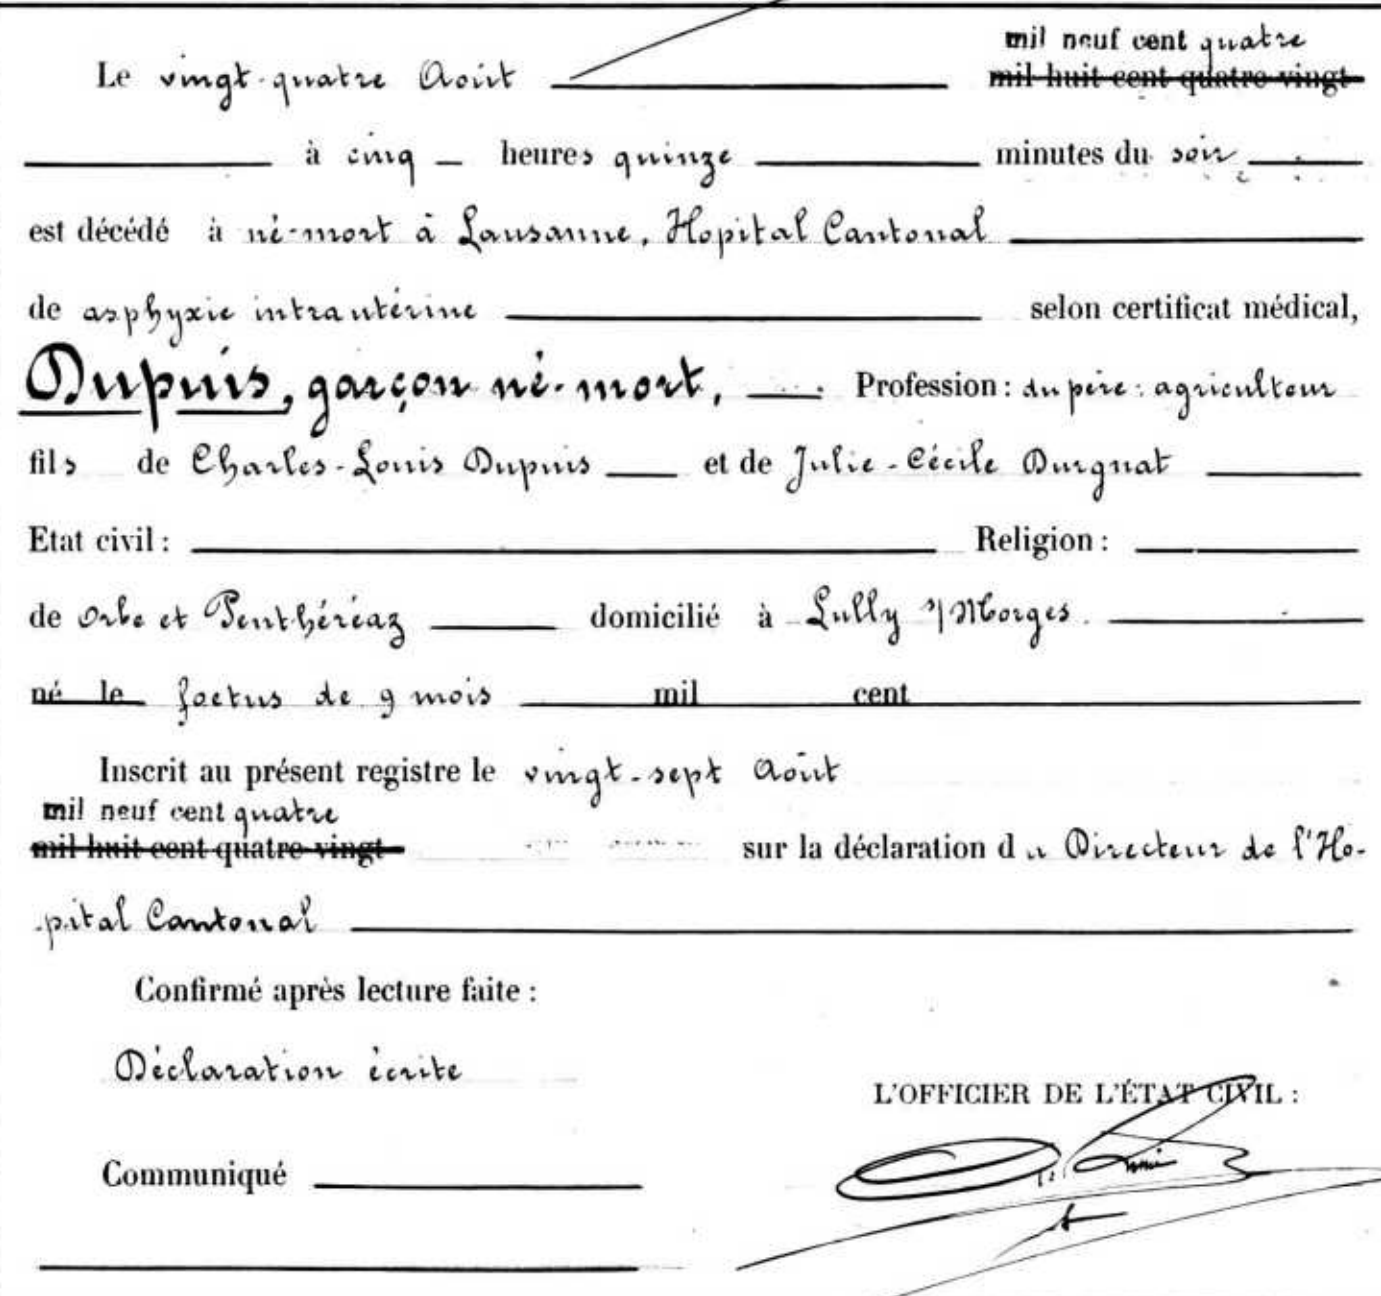 mil neuf cent quatre
Le vingt-quatre Août mil huit cent quatre-vingt
à cinq heures quinze minutes du soir
est décédé à né-mort à Lausanne, Hopital Cantonal
de asphyxie intrautérine selon certificat médical,
Dupuis, garçon né-mort. Profession : du père : agriculteur
fils de Charles-Louis Dupuis et de Julie-Cécile Durgnat
Etat civil : Religion :
de Orbe et Penthéréaz domicilié à Lully s/Morges.
né le foetus de 9 mois mil cent
Inscrit au présent registre le vingt-sept Août
mil neuf cent quatre
mil huit cent quatre-vingt sur la déclaration du Directeur de l'Ho-
pital Cantonal
Confirmé après lecture faite :
Déclaration écrite
L'OFFICIER DE L'ÉTAT CIVIL :
Communiqué